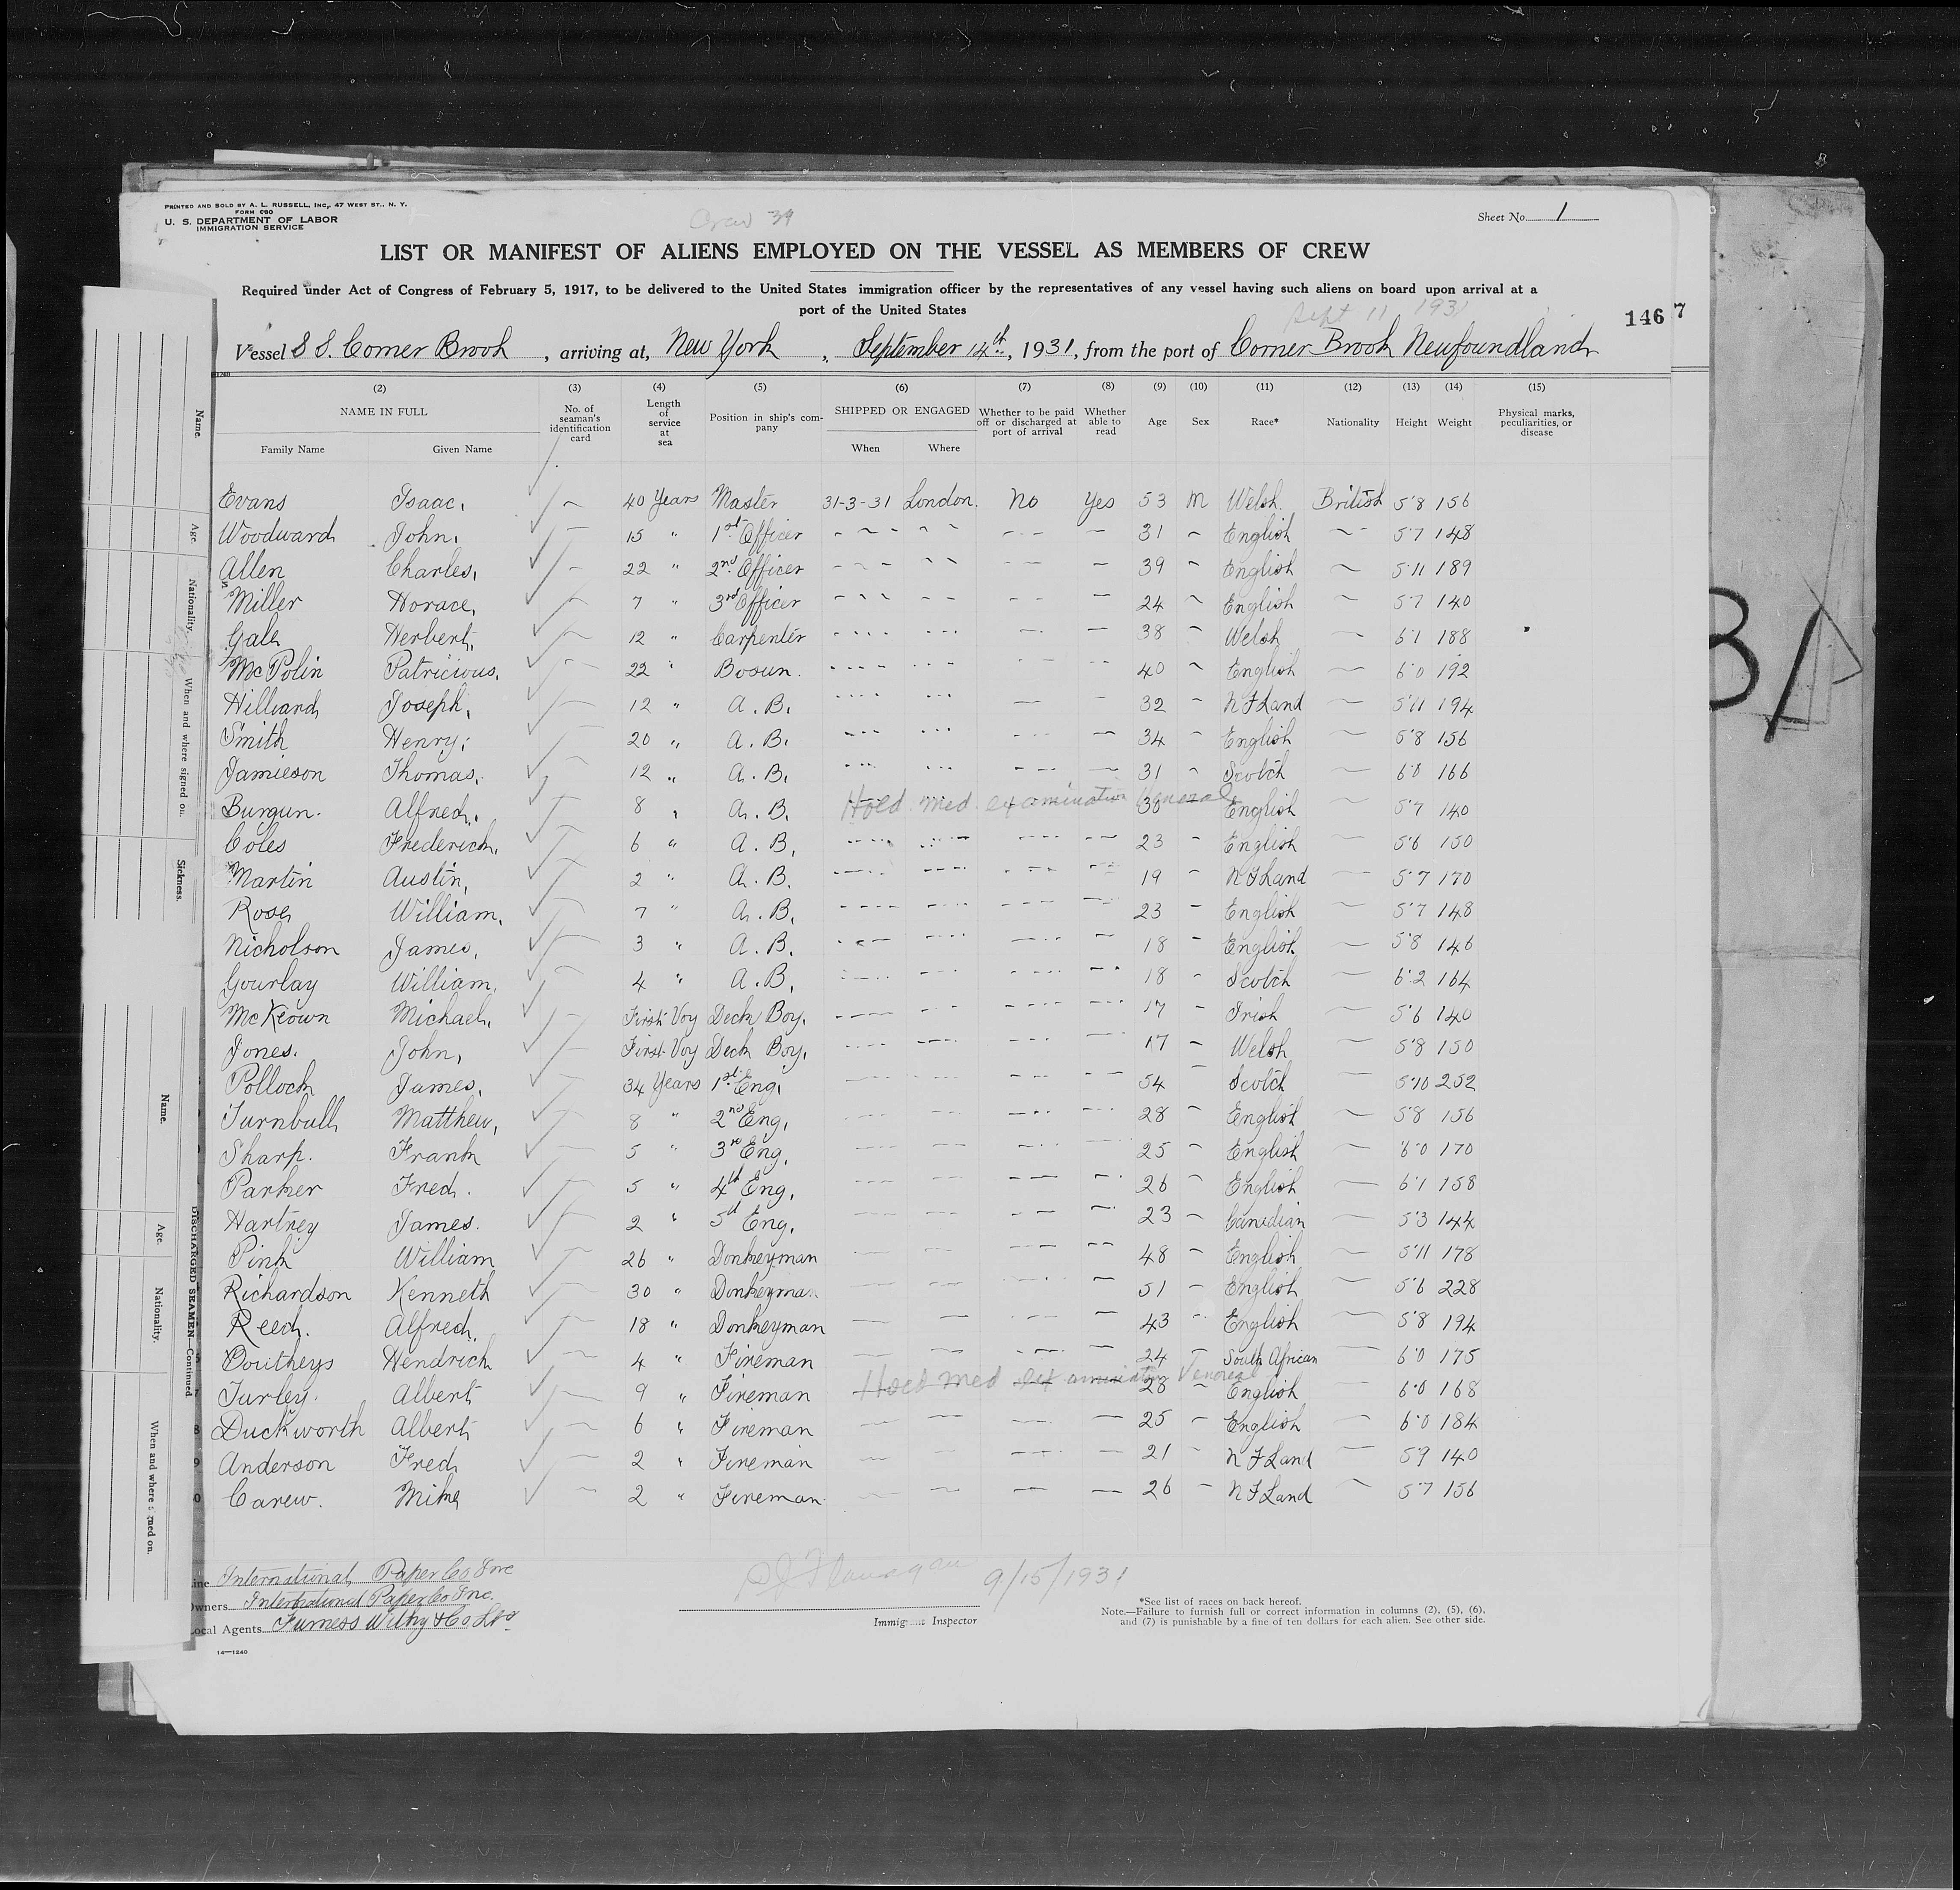 PRINTED AND SOLD BY A. L. RUSSELL, INC., 47 WEST ST., N. Y.
FORM 690
U. S. DEPARTMENT OF LABOR
IMMIGRATION SERVICE
Crew 39
Sheet No. 1
LIST OR MANIFEST OF ALIENS EMPLOYED ON THE VESSEL AS MEMBERS OF CREW
Required under Act of Congress of February 5, 1917, to be delivered to the United States immigration officer by the representatives of any vessel having such aliens on board upon arrival at a
port of the United States
Sept 11 1931
146 7
Vessel S S. Corner Brook, arriving at, New York, September 14th, 1931, from the port of Corner Brook Newfoundland
(2) (3) (4) (5) (6) (7) (8) (9) (10) (11) (12) (13) (14) (15)
NAME IN FULL No. of seaman's identification card Length of service at sea Position in ship's company SHIPPED OR ENGAGED Whether to be paid off or discharged at port of arrival Whether able to read Age Sex Race* Nationality Height Weight Physical marks, peculiarities, or disease
Family Name Given Name When Where
Evans Isaac, 40 Years Master 31-3-31 London. No Yes 53 M Welsh. British 5'8 156
Woodward John, 15 " 1st Officer 31 English 5'7 148
Allen Charles, 22 " 2nd Officer 39 English 5'11 189
Miller Horace, 7 " 3rd Officer 24 English 5'7 140
Gale Herbert, 12 " Carpenter 38 Welsh 6'1 188
McPolin Patricious, 22 " Bosun. 40 English 6'0 192
Hilliard Joseph, 12 " A.B. 32 NFLand 5'11 194
Smith Henry, 20 " A.B. 34 English 5'8 156
Jamieson Thomas, 12 " A.B. 31 Scotch 6'0 166
Burgun. Alfred, 8 " A.B. Hold med. examination Veneral 30 English 5'7 140
Coles Frederick, 6 " A.B. 23 English 5'6 150
Martin Austin, 2 " A.B. 19 NFLand 5'7 170
Rose William, 7 " A.B. 23 English 5'7 148
Nicholson James, 3 " A.B. 18 English 5'8 146
Gourlay William, 4 " A.B. 18 Scotch 6'2 164
McKeown Michael, First Voy Deck Boy. 17 Irish 5'6 140
Jones. John, First Voy Deck Boy. 17 Welsh 5'8 150
Pollock James, 34 Years 1st Eng. 54 Scotch 5'10 252
Turnbull Matthew, 8 " 2nd Eng. 28 English 5'8 156
Sharp. Frank 5 " 3rd Eng. 25 English 6'0 170
Parker Fred. 5 " 4th Eng. 26 English 6'1 158
Hartney James. 2 " 5th Eng. 23 Canadian 5'3 144
Pink William 26 " Donkeyman 48 English 5'11 178
Richardson Kenneth 30 " Donkeyman 51 English 5'6 228
Reed. Alfred. 18 " Donkeyman 43 English 5'8 194
Doutheys Hendrick 4 " Fireman 24 South African 6'0 175
Turley. Albert 9 " Fireman Hold med examination Veneral 28 English 6'0 168
Duckworth Albert 6 " Fireman 25 English 6'0 184
Anderson Fred 2 " Fireman 21 NFLand 5'9 140
Carew. Mike 2 " Fireman 26 NFLand 5'7 156
Line International Paper Co Inc
Owners International Paper Co Inc.
Local Agents Furness Withy & Co Ltd
9/15/1931
Immigrant Inspector
*See list of races on back hereof.
Note.—Failure to furnish full or correct information in columns (2), (5), (6),
and (7) is punishable by a fine of ten dollars for each alien. See other side.
14—1240
Name.
Age.
Nationality.
When and where signed on.
Sickness.
DISCHARGED SEAMEN—Continued
Name.
Age.
Nationality.
When and where signed on.